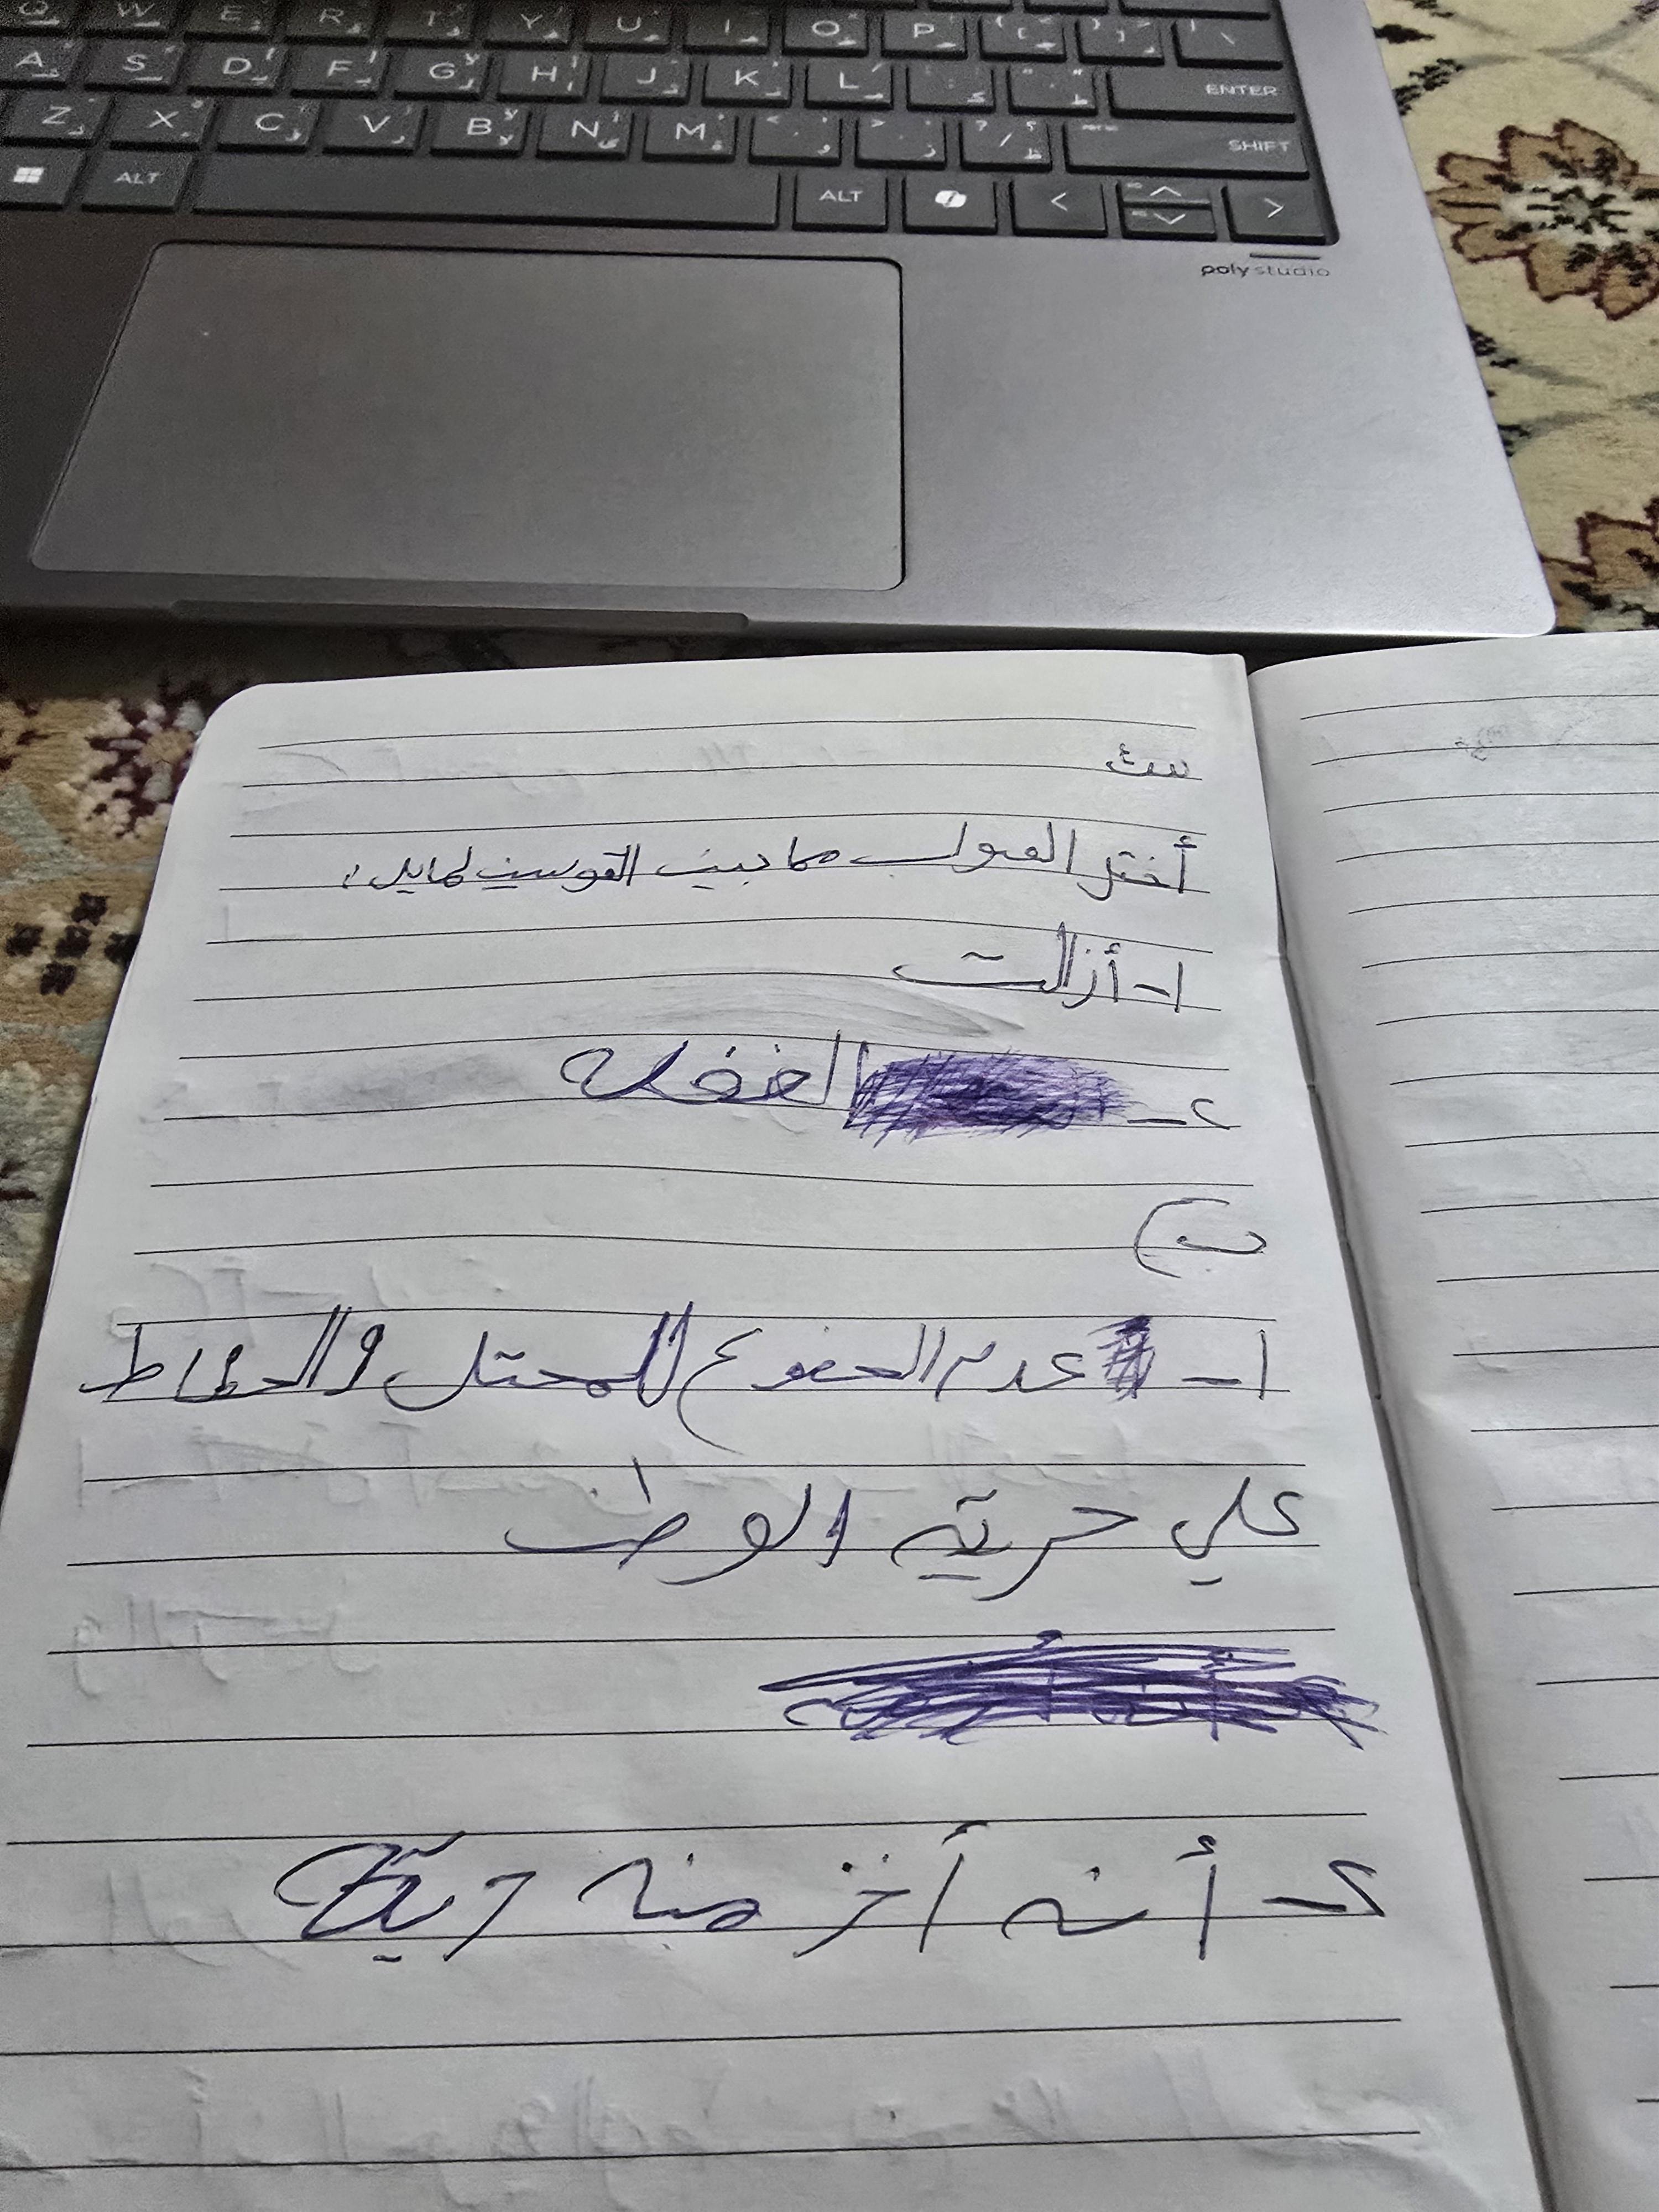 Q W E R T Y U I O P
A S D F G H J K L ENTER
Z X C V B N M SHIFT
ALT ALT
poly studio
س٤
أختر الصواب مما بين القوسين لما يلي:
١- أزالت
٢- الغفلة
ب)
١- عدم الخضوع للمحتل والحفاظ
علي حرية الوطن
٢- أنه أخذ منه